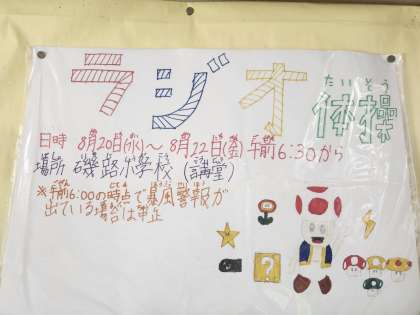 ラジオ体操
たいそう
日時 8月20日(水)～8月22日(金)午前6:30から
場所 磯路小学校(講堂)
※午前6:00の時点で暴風警報が
出ている場合は中止
?